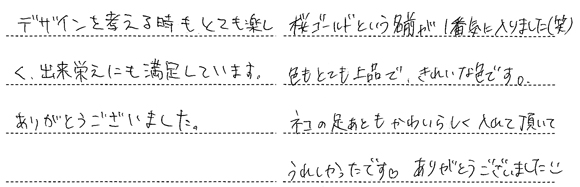 デザインを考える時もとても楽し
く、出来栄えにも満足しています。
ありがとうございました。
桜ゴールドという名前が1番気に入りました(笑)
色もとても上品で、きれいな色です。
ネコの足あともかわいらしく入れて頂いて
うれしかったです♡ ありがとうございました☺